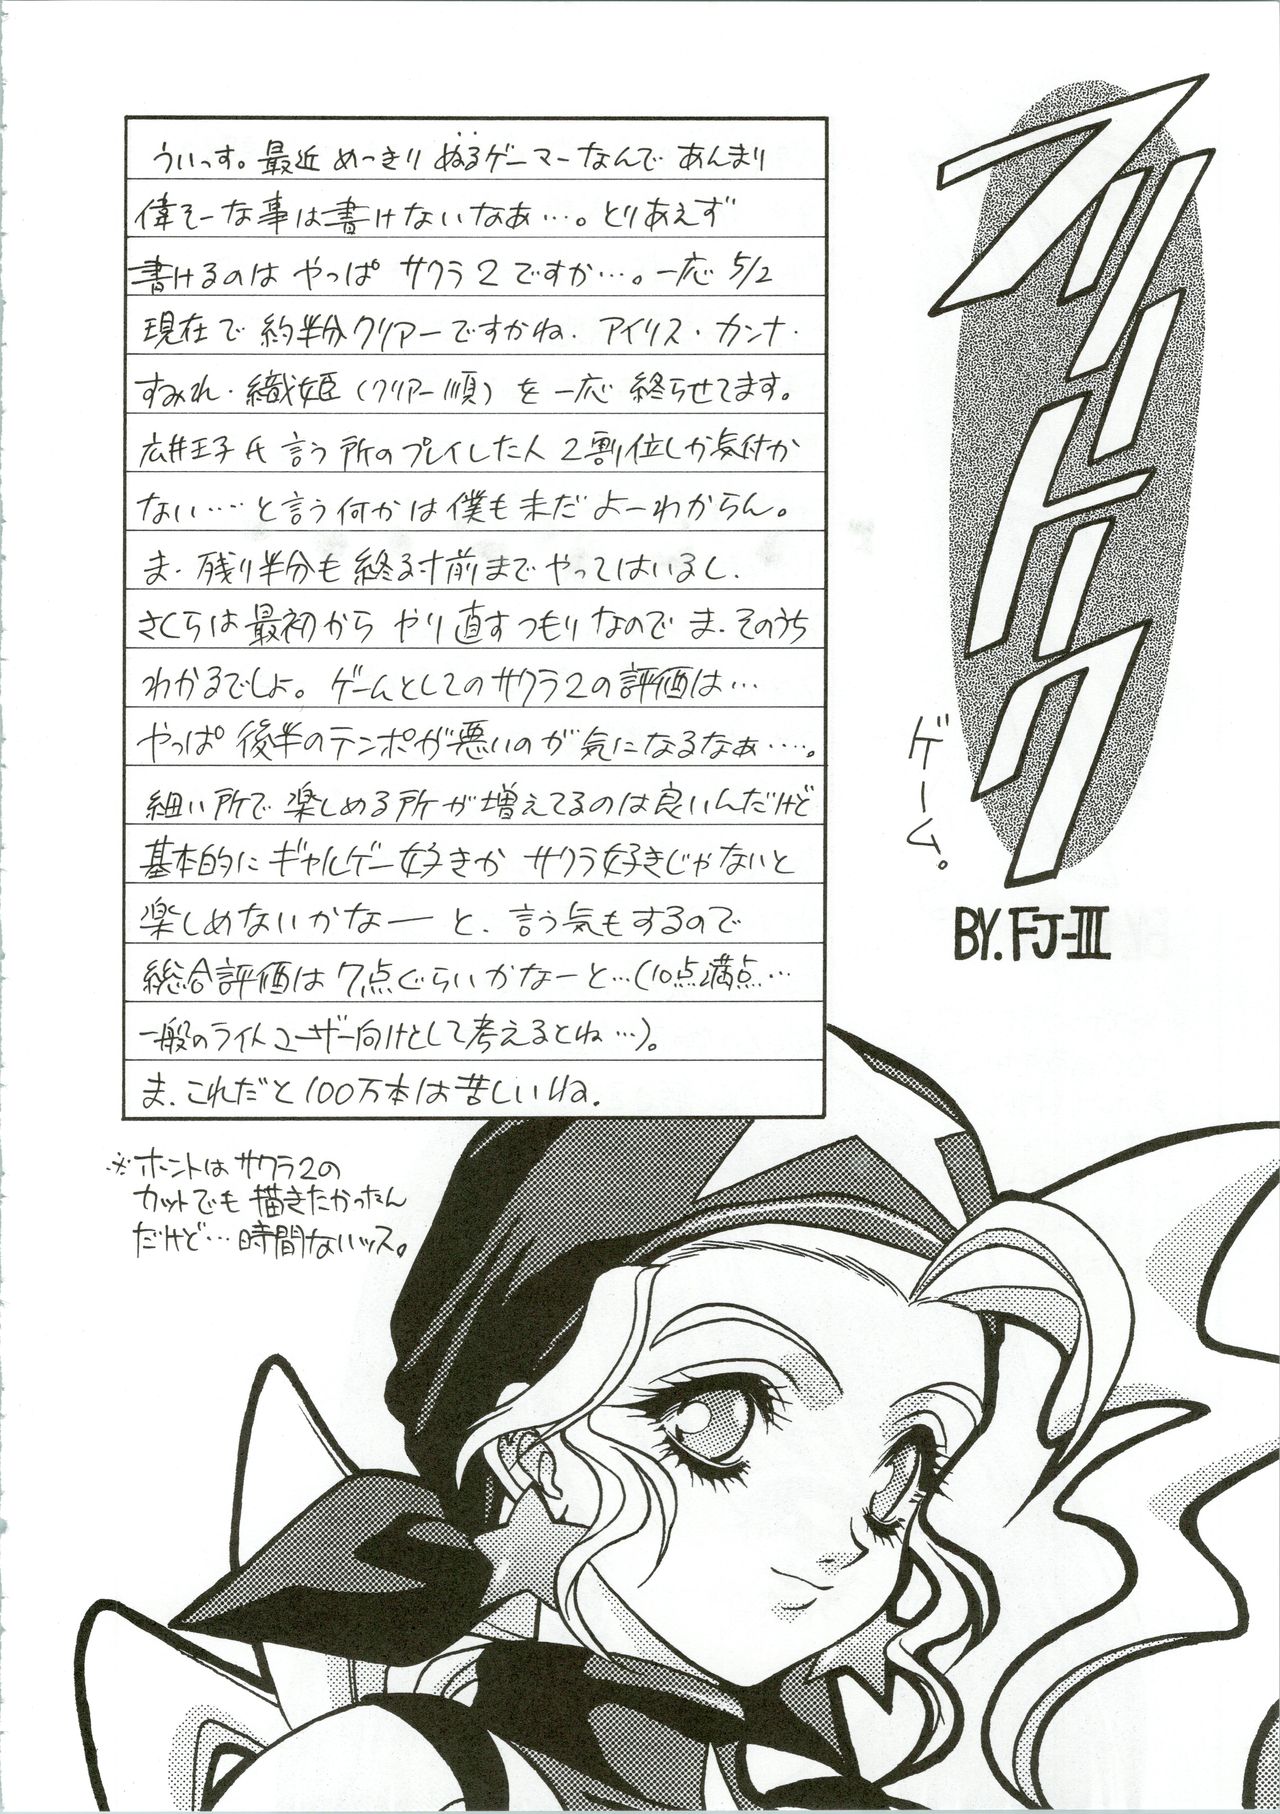 フリートーク
ゲーム。
BY.FJ-III
ういっす。最近 めっきり ぬるゲーマーなんで あんまり
偉そーな事は書けないなあ…。とりあえず
書けるのは やっぱ サクラ2ですか…。一応 5/2
現在で 約半分クリアーですかね. アイリス・カンナ・
すみれ・織姫(クリアー順)を 一応 終らせてます。
広井王子氏 言う所のプレイした人 2割位しか気付か
ない……と言う何かは僕も未だ よーわからん。
ま.残り半分も終る寸前までやってはいるし.
さくらは最初から やり直すつもりなので ま.そのうち
わかるでしょ。ゲームとしてのサクラ2の評価は…
やっぱ 後半のテンポが悪いのが 気になるなあ……。
細い所で 楽しめる所が増えてるのは良いんだけど
基本的にギャルゲー好きか サクラ好きじゃないと
楽しめないかなー と、言う気もするので
総合評価は 7点ぐらいかなーと…(10点満点…
一般のライトユーザー向けとして考えるとね…)。
ま.これだと100万本は苦しいね.
※ホントはサクラ2の
カットでも 描きたかったん
だけど…時間ないッス。